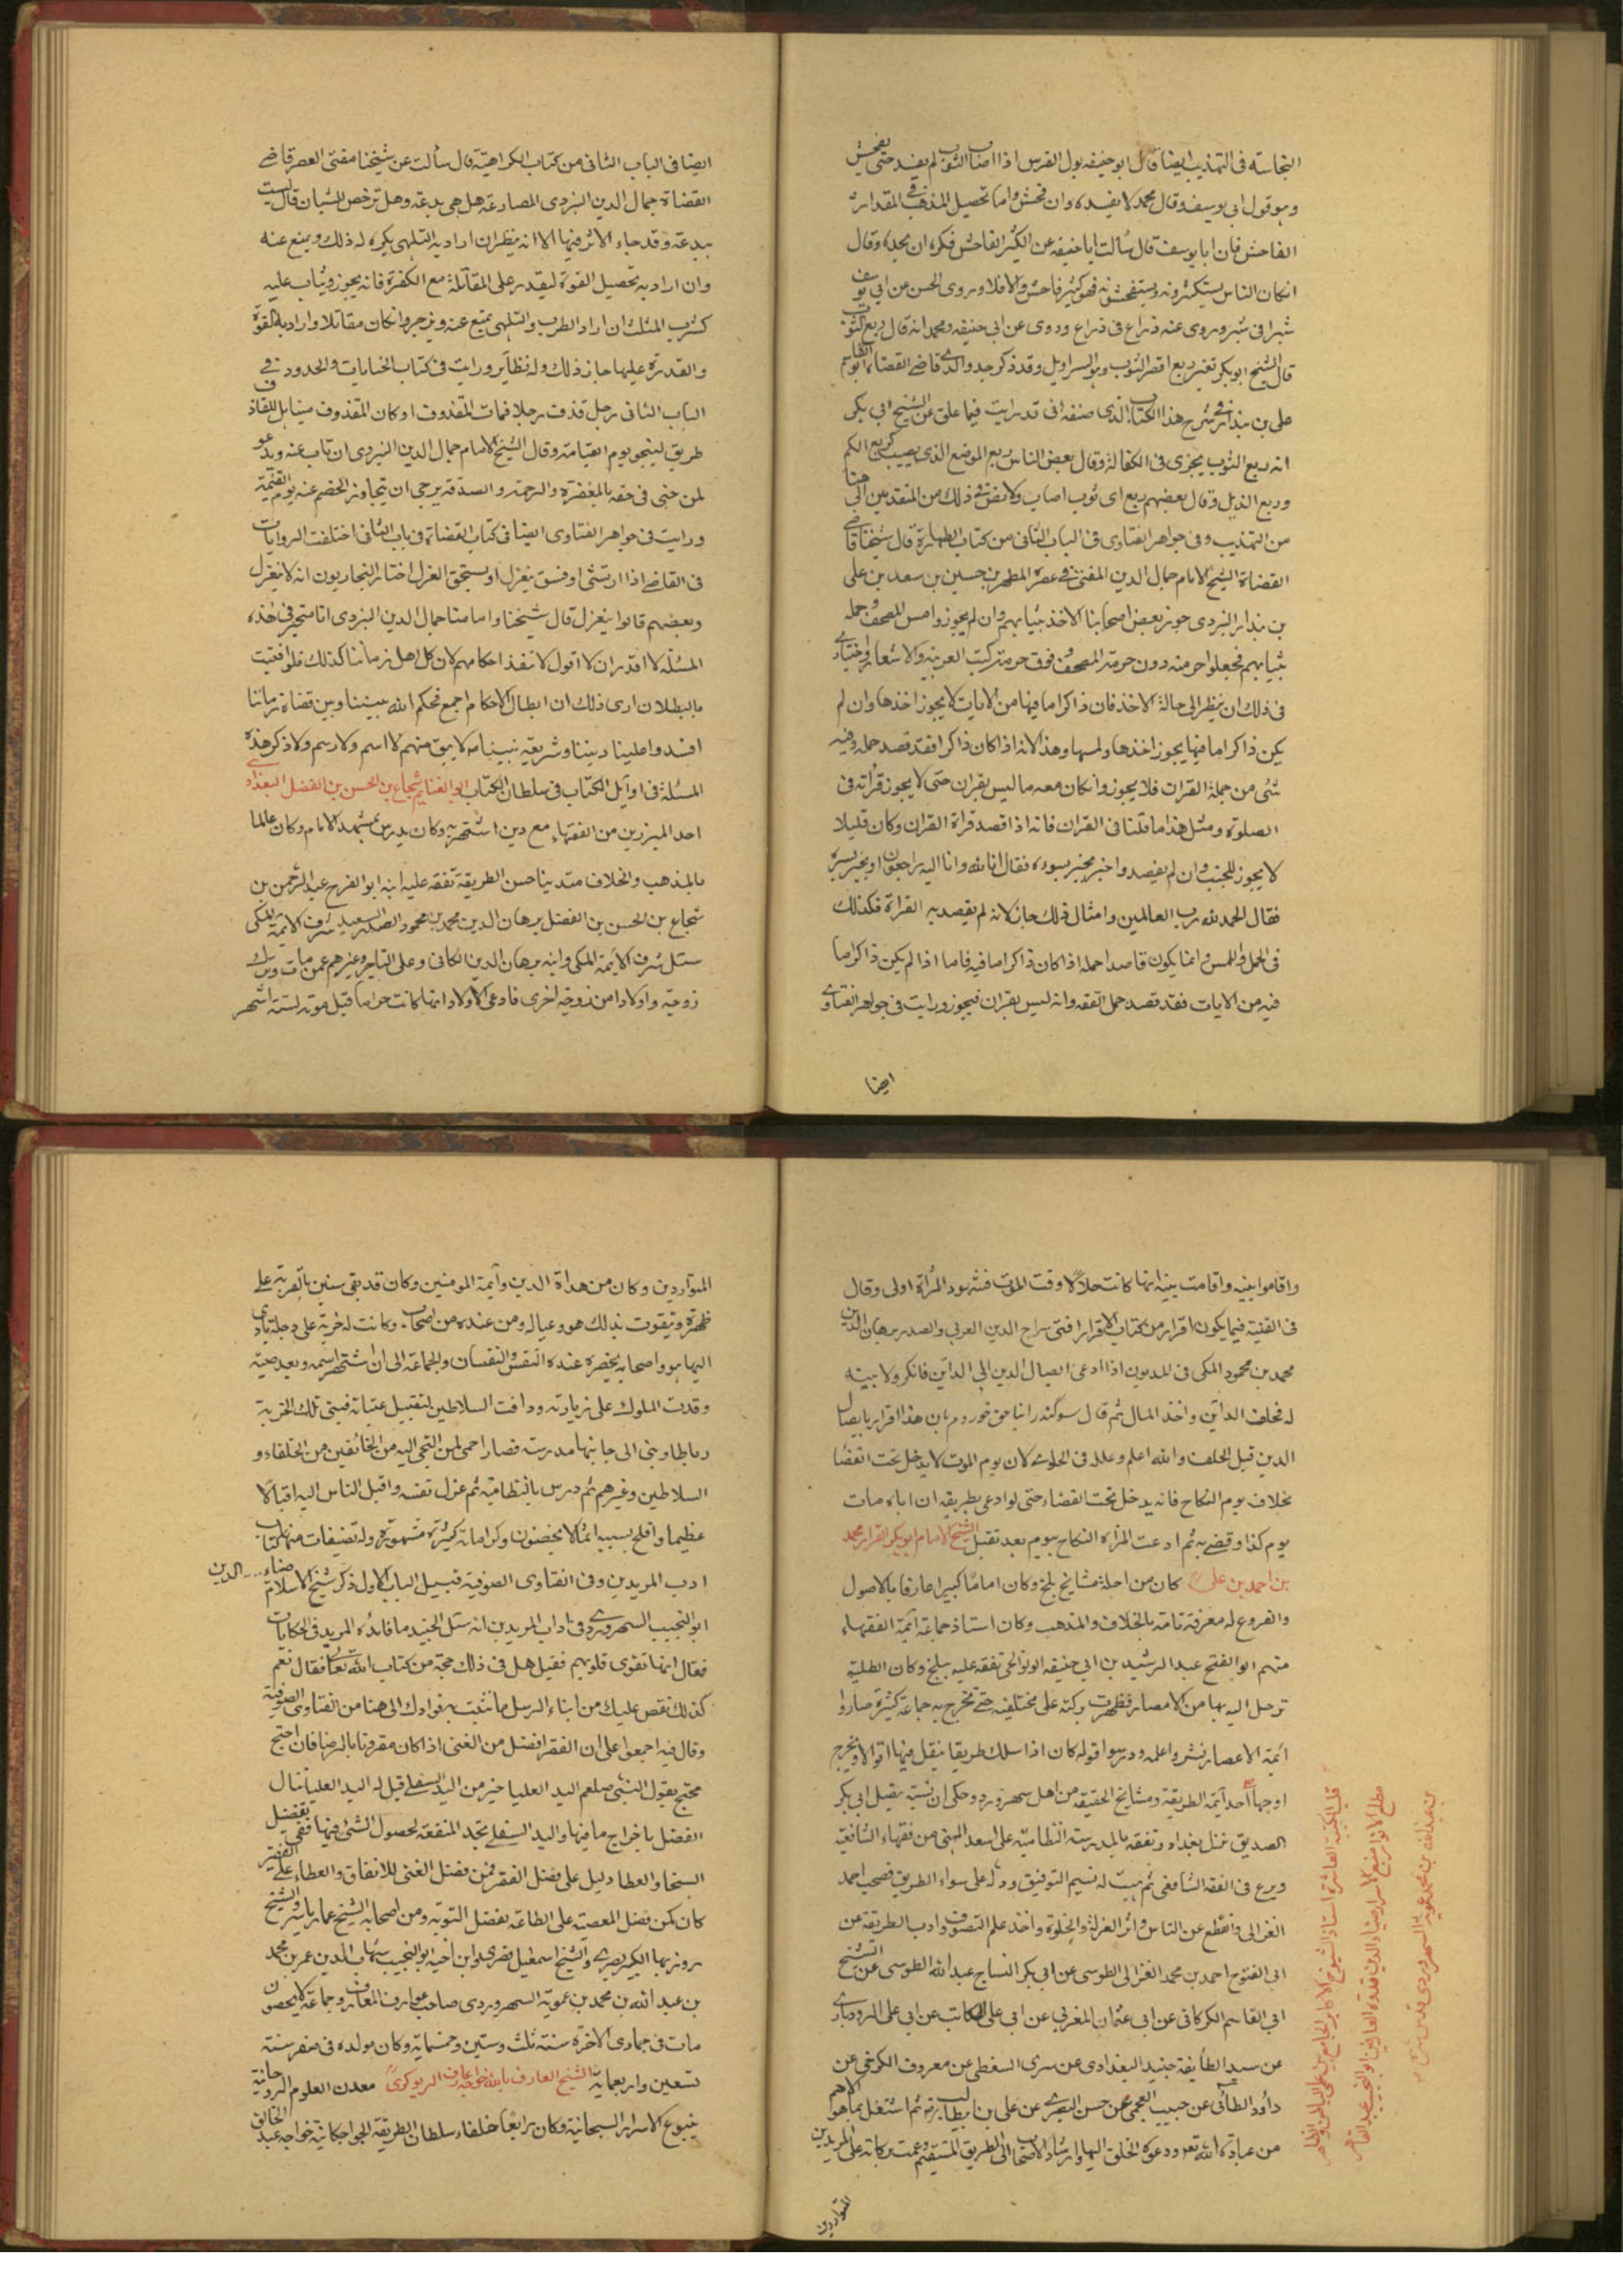 النجاسة فى التهذيب ايضا قال ابو حنيفه بول الفرس اذا اصاب الثوب لم يفسد حتى يفحش
وهو قول ابى يوسف وقال محمد لا يفسده وان فحش واما تحصيل المذهب فى المقدار
الفاحش فان ابا يوسف قال سألت ابا حنيفه عن الكثير الفاحش فكره ان يحده وقال
انكان الناس يستكثرونه ويستفحشونه فهو كثير فاحش والا فلا وروى الحسن عن ابى يوسف
شبرا فى شبر وروى عنه ذراع فى ذراع وروى عن ابى حنيفه ومحمد انه قال ربع الثوب
قال الشيخ ابو بكر تفسير ربع اقصر الثوب وهو السراويل وقد ذكر جد والدى قاضى القضاة ابو القاسم
على بن بندار فى شرح هذا الكتاب الذى صنفه انى قد رايت فيما علق عن الشيخ ابى بكر
انه ربع الثوب يجزى فى الكفالة وقال بعض الناس ربع الموضع الذى يصيب كربع الكم
وربع الذيل وقال بعضهم ربع اى ثوب اصاب ولا نص فى ذلك من المتقدمين الى هنا
من التهذيب وفى جواهر الفتاوى فى الباب الثانى من كتاب الطهارة قال شيخنا قاضى
القضاة الشيخ الامام جمال الدين المفتى فى عصره المطهر بن حسين بن سعد بن على
بن بندار اليزدى جوز بعض اصحابنا الاخذ بثيابهم وان لم يجوزوا مس المصحف وحمله
بثيابهم فجعلوا حرمته دون حرمة المصحف فوق حرمة كتب العربية والاشعار واختيارى
فى ذلك ان ينظر الى حالة الاخذ فان ذاكرا ما فيها من الايات لا يجوز اخذها وان لم
يكن ذاكرا ما فيها يجوز اخذها ولمسها وهذا لانه اذا كان ذاكرا فقد قصد حمله وفيه
شئ من جملة القران فلا يجوز وانكان معه ما ليس بقران حتى لا يجوز قرأته فى
الصلوة ومثل هذا ما قلنا فى القران فانه اذا قصد قراة القران وكان قليلا
لا يجوز للجنب وان لم يقصد واخبر بخبر يسوءه فقال انا لله وانا اليه راجعون او بخبر يسره
فقال الحمد لله رب العالمين وامثال ذلك جاز لانه لم يقصد به القراة فكذلك
فى الحمل واللمس وانما يكون قاصدا حمله اذا كان ذاكرا ما فيه فاما اذا لم يكن ذاكرا ما
فيه من الايات فقد قصد حمل الفقه وانه ليس بقران فيجوز ورايت فى جواهر الفتاوى
ايضا
ايضا فى الباب الثانى من كتاب الكراهية قال سألت عن شيخنا مفتى العصر قاضى
القضاة جمال الدين اليزدى المصارعة هل هى بدعة وهل ترخص للشبان قال ليست
ببدعة وقد جاء الاثر فيها الا انه ينظر ان اراد به التلهى يكره له ذلك ويمنع عنه
وان اراد به تحصيل القوة ليقدر على المقاتلة مع الكفرة فانه يجوز ويثاب عليه
كشرب المثلث ان اراد الطرب والتلهى يمنع عنه ويزجر وانكان مقاتلا واراد به القوة
والقدرة عليها جاز ذلك وله نظاير ورايت فى كتاب الجنايات والحدود فى
الباب الثانى رجل قذف رجلا فمات المقذوف او كان المقذوف ميتا هل للقاذف
طريق لينجو يوم القيامة وقال الشيخ الامام جمال الدين اليزدى ان تاب عنه ويدعو
لمن جنى فى حقه بالمغفرة والرحمة والصدقة يرجى ان يتجاوز الخصم عنه يوم القيمة
ورايت فى جواهر الفتاوى ايضا فى كتاب القضاة فى باب الثانى اختلفت الروايات
فى القاضى اذا ارتشى او فسق ينعزل او يستحق العزل اختار البخاريون انه لا ينعزل
وبعضهم قالوا ينعزل قال شيخنا وامامنا جمال الدين اليزدى انا متحير فى هذه
المسئلة لا اقدر ان لا اقول لا تنفذ احكامهم لان كل اهل زماننا كذلك فلو افتيت
بالبطلان ارى ذلك ان ابطال الاحكام اجمع فحكم الله بيننا وبين قضاة زماننا
افسدوا علينا ديننا وشريعة نبينا لا يبق منهم لا اسم ولا رسم ولا ذكر هذه
المسئلة فى اوايل الكتاب فى سلطان الكتاب ابو الغنايم شجاع بن الحسن بن الفضل البغدادى
احد المبرزين من الفقهاء مع دين اشتهر به وكان يدرس بمشهد الامام وكان عالما
بالمذهب والخلاف متدينا حسن الطريقة تفقه عليه ابنه ابو الفرج عبد الرحمن بن
شجاع بن الحسن بن الفضل برهان الدين محمد بن محمود الصدر السعيد شرف الائمة المكى
سئل شرف الائمة المكى وابنه برهان الدين الكافى وعلى التاجر وغيرهم عمن مات وترك
زوجة واولادا من زوجة اخرى فادعى الاولاد انها كانت حراما قبل موته بستة اشهر
واقاموا بينه واقامت بينه انها كانت حلالا وقت الموت فشهود المرأة اولى وقال
فى القنية فيما يكون اقرار من كتاب الاقرار افتى سراج الدين العربى والصدر برهان الدين
محمد بن محمود المكى فى المديون اذا ادعى ايصال الدين الى الداين فانكر ولا بينة
له فحلف الداين واخذ المال ثم قال سوگند را بنا حق خوردم بان هذا اقرار بايصال
الدين قبل الحلف والله اعلم وعلله فى الحلوى لان يوم الموت لا يدخل تحت القضا
بخلاف يوم النكاح فانه يدخل تحت القضاء حتى لو ادعى بطريقه ان اباه مات
يوم كذا وقضى به ثم ادعت المرأه النكاح بيوم بعد تقبل الشيخ الامام ابو بكر القزاز محمد
بن احمد بن على كان من اجلة مشايخ بلخ وكان اماما كبيرا عارفا بالاصول
والفروع له معرفة تامة بالخلاف والمذهب وكان استاذ جماعة ائمة الفقهاء
منهم ابو الفتح عبد الرشيد بن ابى حنيفه الولوالجى تفقه عليه ببلخ وكان الطلبة
ترحل اليه بها من الامصار فظهرت بركته على مختلفيه حتى تخرج به جماعة كثيرة صاروا
ائمة الاعصار نشروا علمه ودرسوا قوله كان اذا سلك طريقا ينقل فيها اقوالا ويخرج
اوجها احد ائمة الطريقة ومشايخ الحقيقة من اهل سهرورد وحكى ان نسبته يصل ابى بكر
الصديق نزل بغداد وتفقه بالمدرسة النظامية على اسعد الميهنى من فقهاء الشافعية
وبرع فى الفقه الشافعى ثم هبت له نسيم التوفيق ودله على سواء الطريق فصحب احمد
الغزالى وانقطع عن الناس واثر العزلة والخلوة واخذ علم التصوف وادب الطريقة عن
ابى الفتوح احمد بن محمد الغزالى الطوسى عن ابى بكر النساج عبد الله الطوسى عن الشيخ
ابى القاسم الكركانى عن ابى عثمان المغربى عن ابى على الكاتب عن ابى على الرودبارى
عن سيد الطايفة جنيد البغدادى عن سرى السقطى عن معروف الكرخى عن
داود الطائى عن حبيب العجمى عن حسن البصرى عن على بن ابيطالب ثم اشتغل بما هو الاهم
من عبادة الله تعالى ودعوة الخلق اليها وارشاد الاصحاب الى الطريق المستقيم وعمت بركاته على المريدين
المتواردين
قلب الكتيبة العاشرة استاذ الشيوخ الاكابر الجامع بين علمى الباطن والظاهر
مطلع الانوار منبع الاسرار ضياء الدين قدوة العارفين ابو النجيب عبد القاهر
بن عبد الله بن محمد عمويه السهروردى قدس سره
المتواردين وكان من هداة الدين وائمة المومنين وكان قد بقى سنين بالقربة على
ظهره ويتقوت بذلك هو وعياله ومن عنده من اصحاب وكانت له خربة على دجلة ياوى
اليها هو واصحابه يحضره عنده النفس والنفسان والجماعة الى ان اشتهر اسمه وبعد صيته
وقدمت الملوك على زيارته ووافت السلاطين لتقبيل عتباته فبنى تلك الخربة
رباطا وبنى الى جانبها مدرسة فصار احمى لمن التجى اليه من الخائفين من الخلفاء و
السلاطين وغيرهم ثم درس بالنظامية ثم عزل نفسه واقبل الناس اليه اقبالا
عظيما وافلح بسببه امم لا يحصون وكراماته كثيرة مشهورة وله تصنيفات منها كتاب
ادب المريدين وفى الفتاوى الصوفية قبيل الباب الاول ذكر شيخ الاسلام ضياء الدين
ابو النجيب السهروردى فى اداب المريدين انه سئل الجنيد ما فائدة المريد فى الحكايات
فقال انها تقوى قلوبهم فقيل هل فى ذلك حجة من كتاب الله تعالى فقال نعم
كذلك نقص عليك من انباء الرسل ما نثبت به فؤادك الى هنا من الفتاوى الصوفية
وقال فيه اجمعوا على ان الفقر افضل من الغنى اذا كان مقرونا بالرضا فان احتج
محتج بقول النبى صلعم اليد العليا خير من اليد السفلى قيل له اليد العليا تنال
الفضل باخراج ما فيها واليد السفلى تجد المنقصة لحصول الشئ فيها ففى تفضيل
السخا والعطا دليل على فضل الفقر فمن فضل الغنى للانفاق والعطاء على الفقر
كان كمن فضل المعصية على الطاعة بفضل التوبة ومن اصحابه الشيخ عمار ياسر والشيخ
روزبهان الكبير المصرى والشيخ اسمعيل القصرى وابن اخيه ابو النجيب شهاب الدين عمر بن محمد
بن عبد الله بن محمد بن عمويه السهروردى صاحب عوارف المعارف وجماعة لا يحصون
مات فى جمادى الاخرة سنة ثلث وستين وخمسماية وكان مولده فى صفر سنة
تسعين واربعماية الشيخ العارف بالله خواجه عارف الريوكرى معدن العلوم الروحانية
ينبوع الاسرار السبحانية وكان رابعا خلفاء سلطان الطريقة الخواجكانية خواجه عبد الخالق